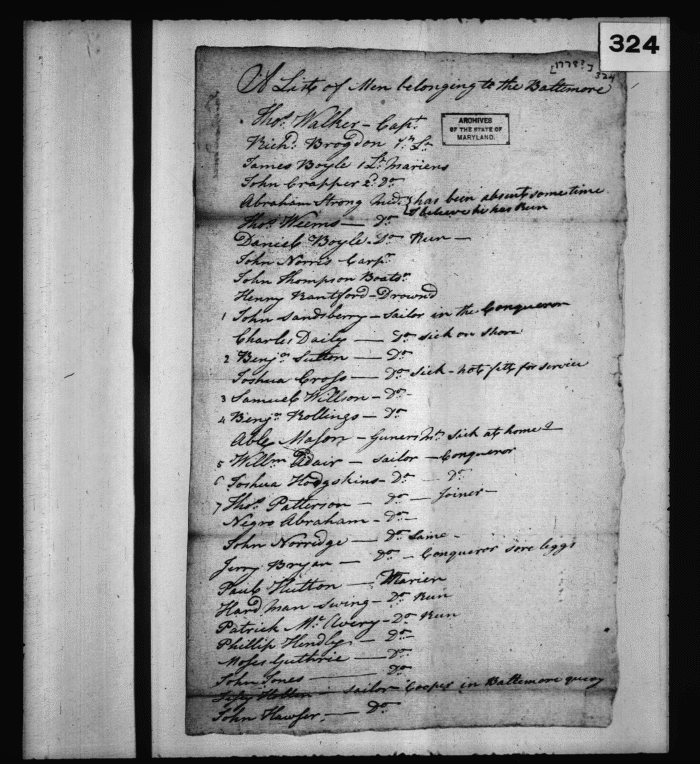 324
[1778?]
324
A List of Men belonging to the Baltemore
ARCHIVES
OF THE STATE OF
MARYLAND.
Thos. Walker - Capt.
Richd. Brogdon 1st Lt
James Boyle 1 Lt Mariens
John Crapper 2d. Do
Abraham Strong Mid. has been absent some time
I believe he has Run
Thos. Weems - Do
Daniel Boyle - Do Run -
John Norris Carpr.
John Thompson Boatsn.
Henry Rantford - Drownd
1 John Sandsberry - Sailor in the Conqueror
Charles Daily - Do sick on shore
2 Benjn Sutton - Do
Joshua Cross - Do Sick - not fitt for service
3 Samuel Willson - Do -
4 Benjn. Rollings - Do
Able Mason - Guners Mt. Sick at home
5 Willm Adair - sailor - Conqueror
6 Joshua Hodgskins - Do - Do
7 Thos. Patterson - Do - Joiner -
Negro Abraham - Do -
John Norridge - Do Lame -
Jerry Bryan - Do - Conqueror sore leggs
Paul Hutton - Marien
Hardman Swing - Do Run
Patrick Mc. Avery - Do Run
Phillip Hendley - Do
Moses Guthrie - Do
John Jones - Do
sailor Cooper in Baltemore quay
John Hawser. - Do